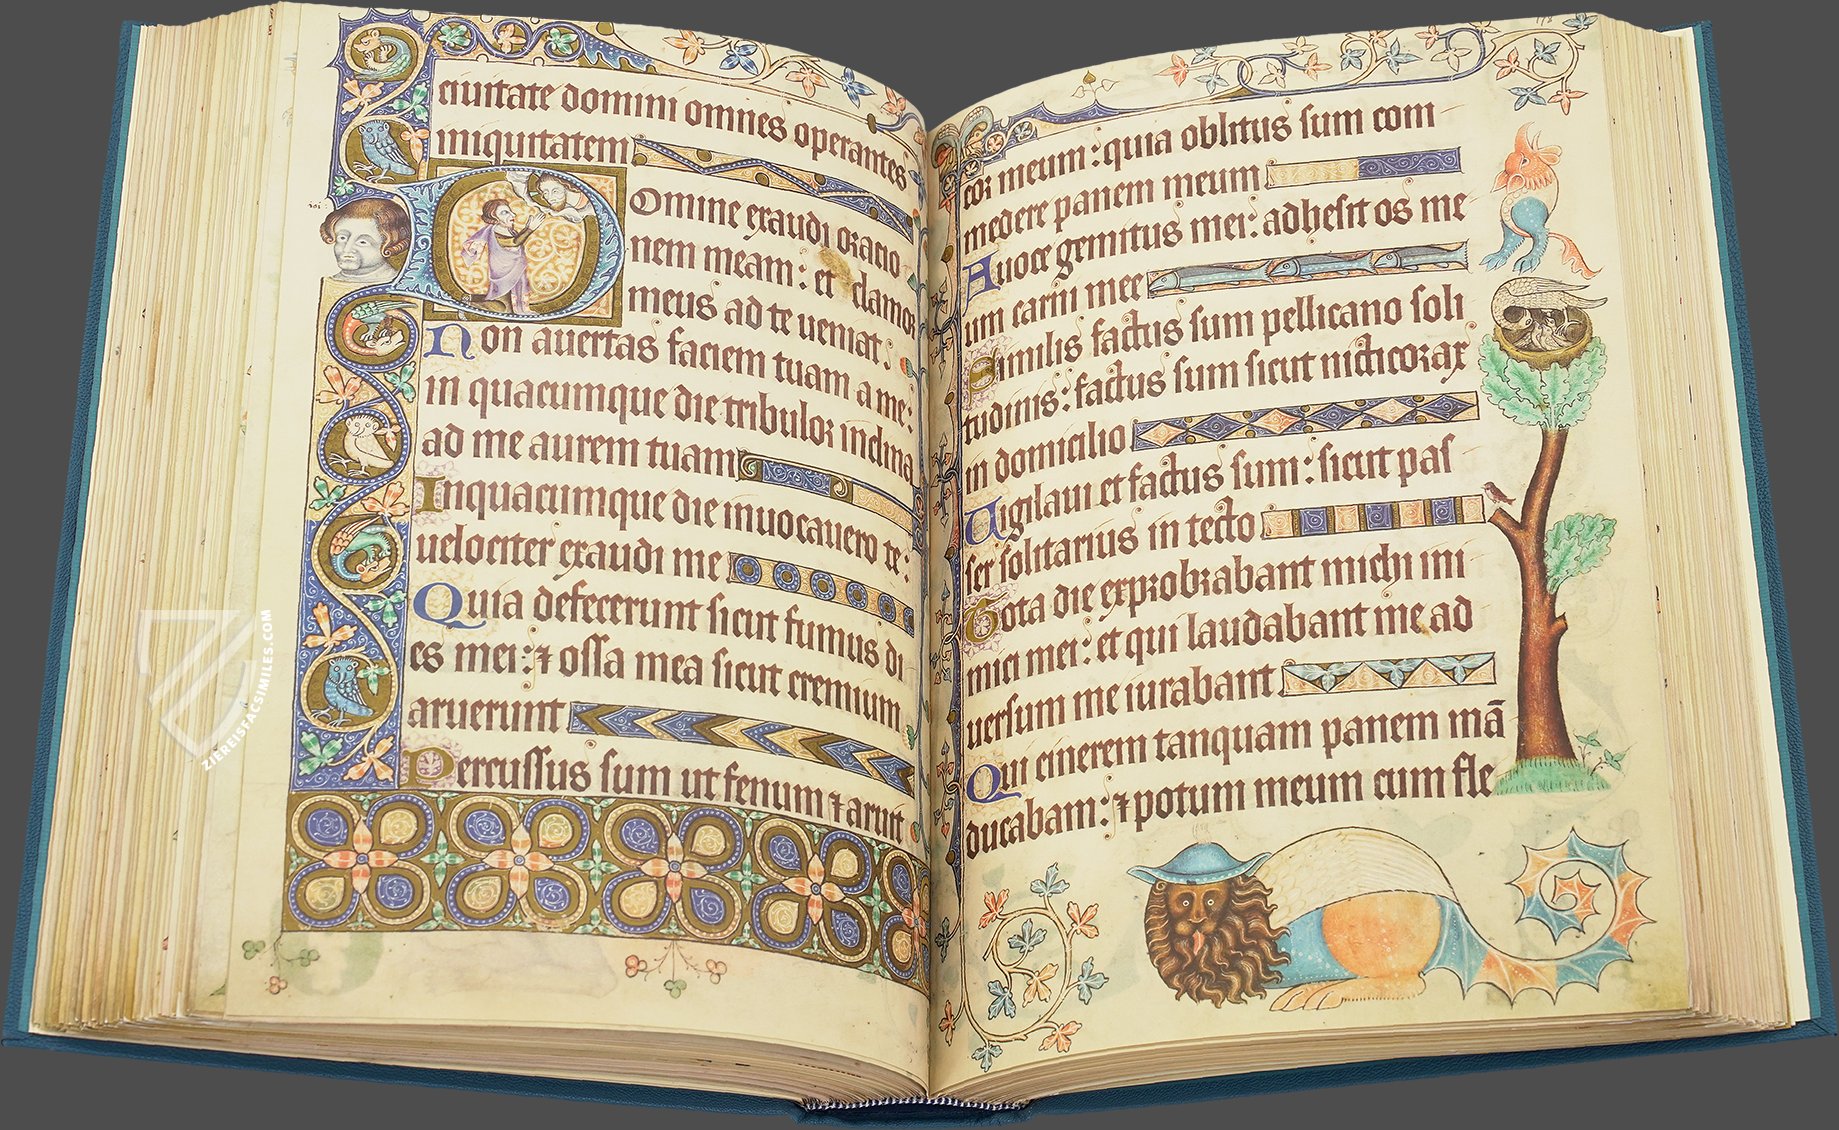 ciuitate domini omnes operantes
iniquitatem
Domine exaudi oracio
nem meam: et clamor
meus ad te ueniat.
Non auertas faciem tuam a me:
in quacumque die tribulor inclina
ad me aurem tuam
Inquacumque die inuocauero te:
uelociter exaudi me
Quia defecerunt sicut fumus di
es mei: ⁊ ossa mea sicut cremium
aruerunt
Percussus sum ut fenum ⁊ aruit
cor meum: quia oblitus sum com
medere panem meum
Auoce gemitus mei: adhesit os me
um carni mee
Similis factus sum pellicano soli
tudinis: factus sum sicut nicticorax
in domicilio
Uigilaui et factus sum: sicut pas
ser solitarius in tecto
Tota die exprobrabant michi ini
mici mei: et qui laudabant me ad
uersum me iurabant
Qui cinerem tanquam panem mā
ducabam: ⁊ potum meum cum fle
ZIEREISFACSIMILES.COM